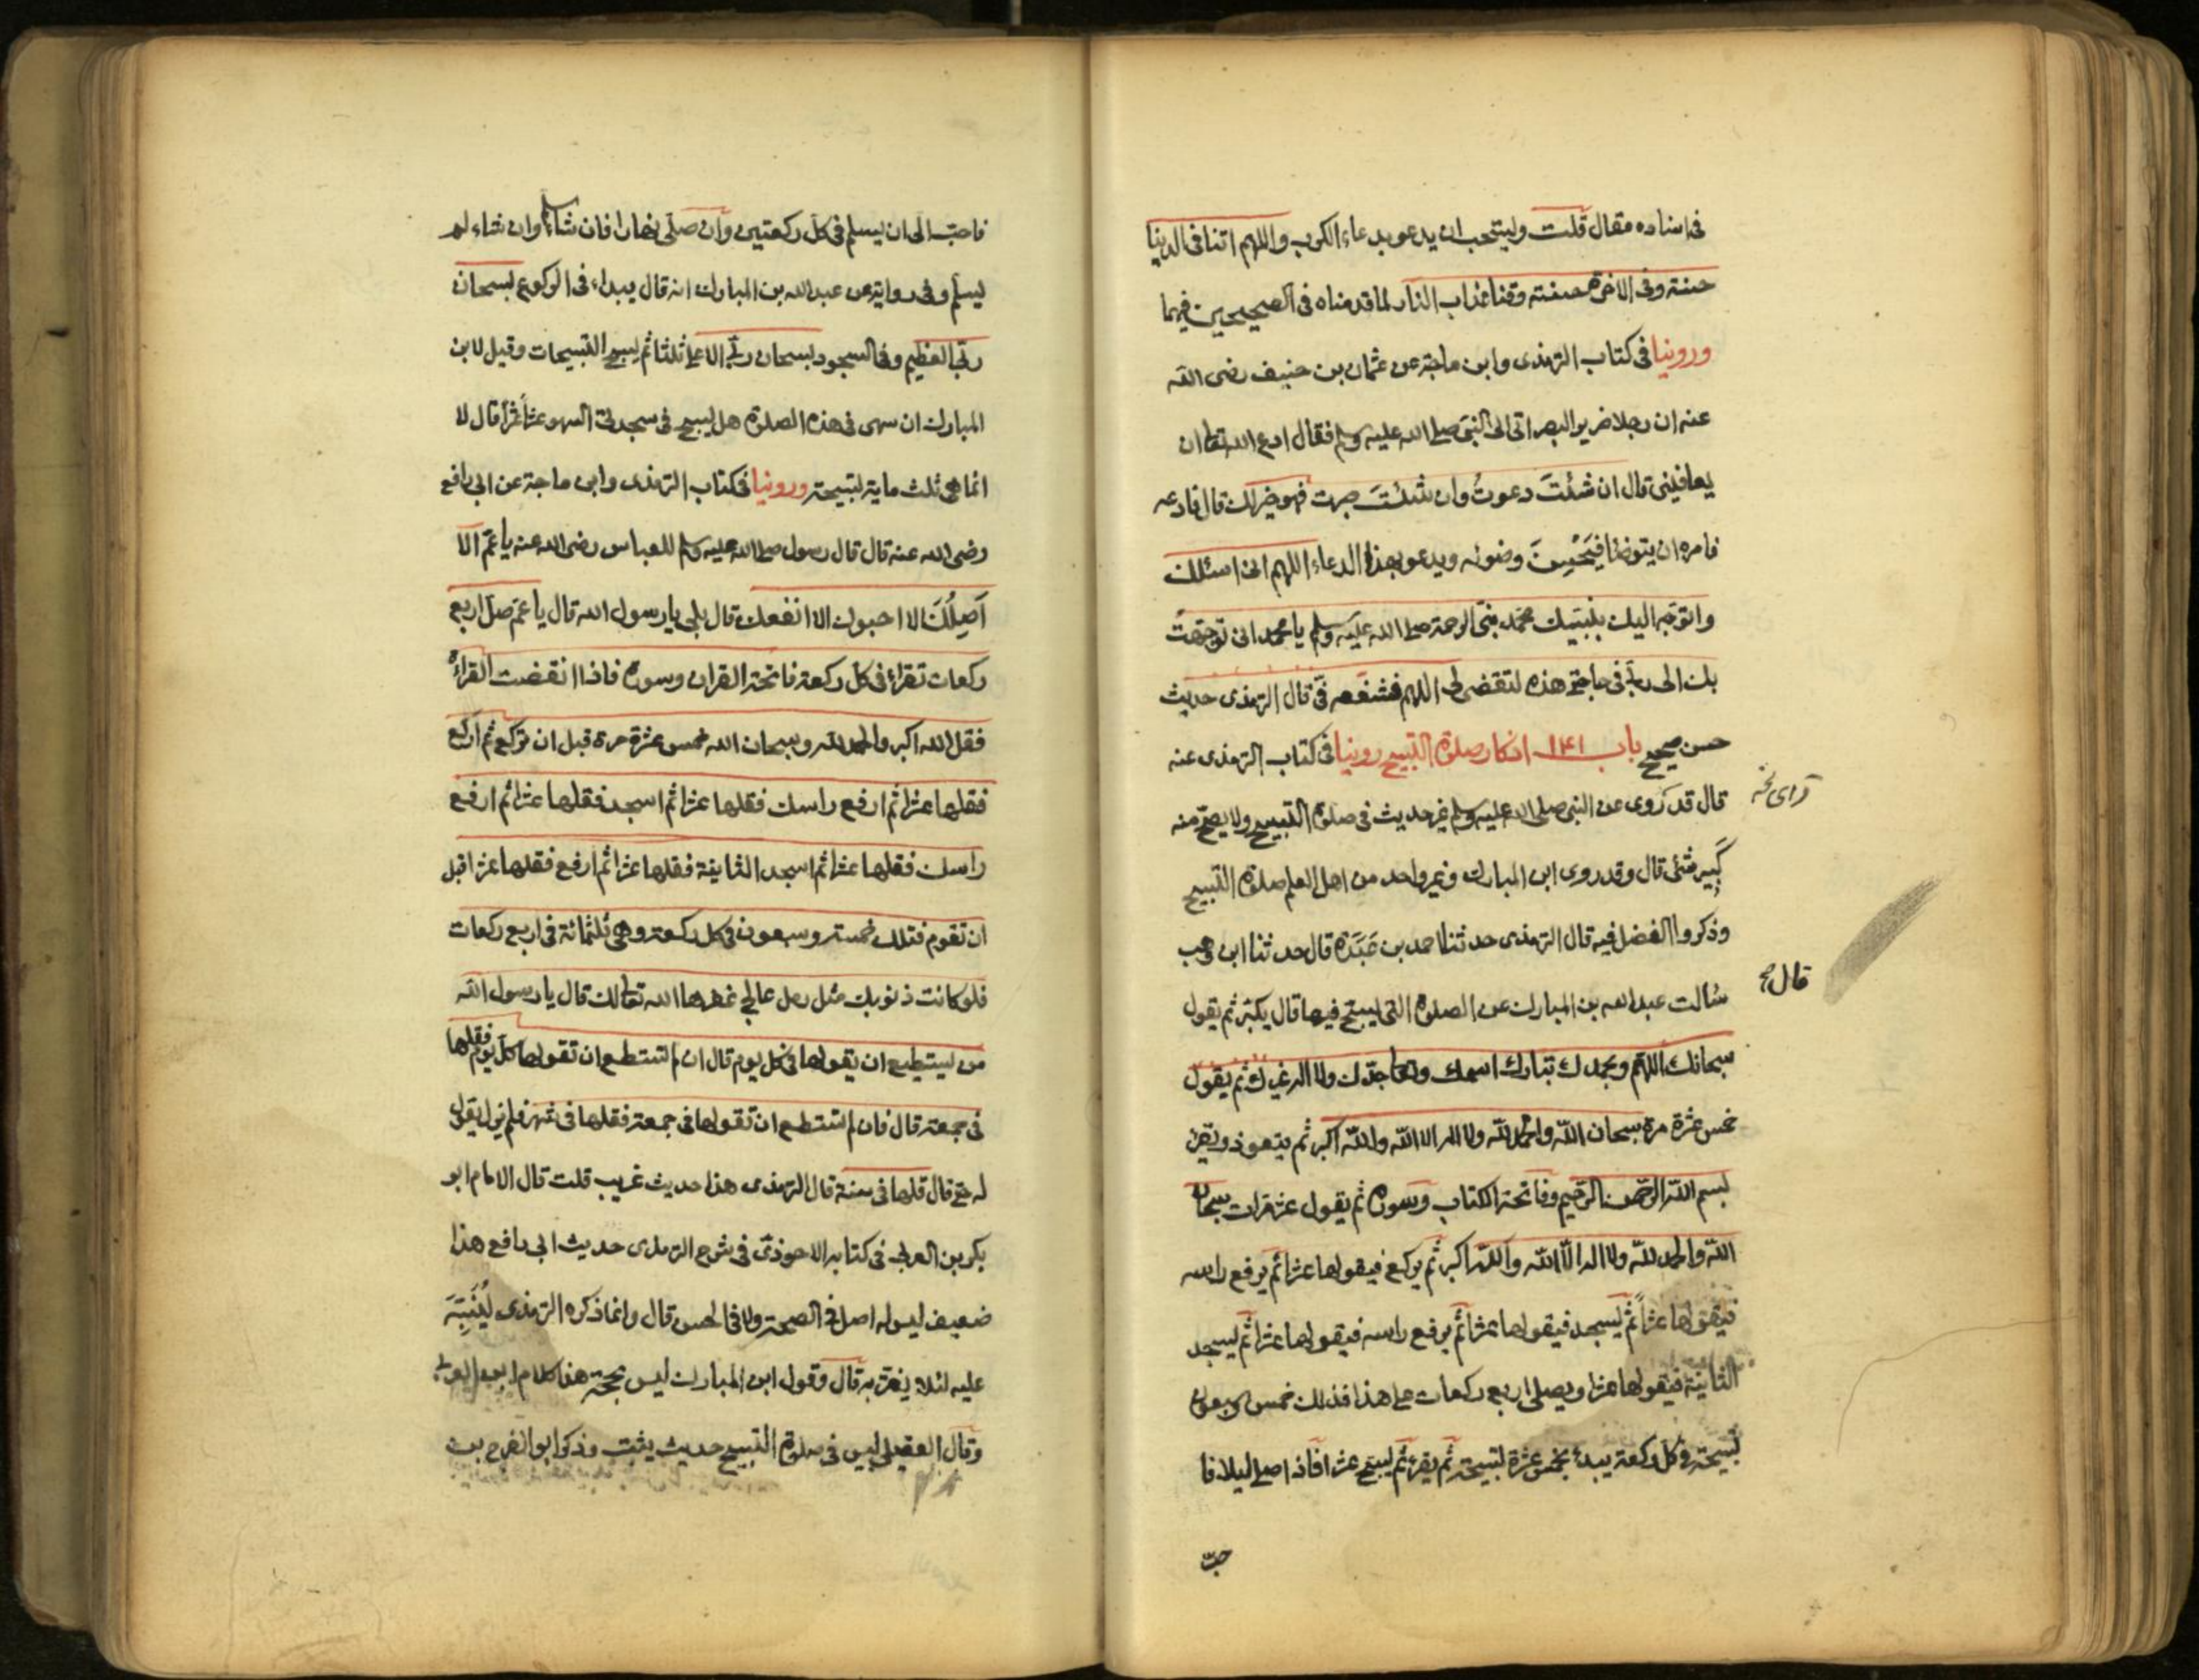 فى اسناده مقال قلت ويستحب ان يدعو بدعاء الكرب واللهم اتنا فى الدنيا
حسنة وفى الاخرة حسنة وقنا عذاب النار لما قدمناه فى الصحيحين فيهما
وروينا فى كتاب الترمذى وابن ماجة عن عثمان بن حنيف رضى الله
عنه ان رجلا ضرير البصر اتى الى النبى صلى الله عليه وسلم فقال ادع الله تعا ان
يعافينى قال ان شئتَ دعوتُ وان شئتَ صبرت فهو خير لك قال فادعه
فامره ان يتوضا فيُحْسِنَ وضوئه ويدعو بهذا الدعاء اللهم انى اسئلك
واتوجّه اليك بنبيك محمّد نبى الرحمة صلى الله عليه وسلم يا محمد انى توجّهتُ
بك الى ربى فى حاجتى هذه لتقضى لى اللهم فشفعه فىّ قال الترمذى حديث
حسن صحيح باب ١٤١ اذكار صلوة التسبيح روينا فى كتاب الترمذى عنه
قال قد روى عن النبى صلى الله عليه وسلم غير حديث فى صلوة التسبيح ولا يصح منه
كَبِير شئ قال وقد روى ابن المبارك وغير واحد من اهل العلم صلوة التسبيح
وذكروا الفضل فيه قال الترمذى حدثنا احمد بن عَبَدَة قال حدثنا ابن وهب
قال صح
سُالت عبد الله بن المبارك عن الصلوة التى يسبّح فيها قال يكبّر ثم يقول
سبحانك اللهم وبحمدك تبارك اسمك وتعا جدّك ولا اله غيرك ثم يقول
خمس عشرة مرة سبحان الله والحمد لله ولا اله الا الله والله اكبر ثم يتعوذ ويقرٔ
بسم الله الرحمن الرحيم وفاتحة الكتاب وسورة ثم يقول عشر مرات سبحان
الله والحمد لله ولا اله الّا الله والله اكبر ثم يركع فيقولها عشرا ثم يرفع راسه
فيقولها عشراً ثم يسجد فيقولها عشرا ثم يرفع راسه فيقولها عشرا ثم يسجد
الثانية فيقولها عشرا ويصلى اربع ركعات على هذا فذلك خمس وسبعون
تسبيحة فى كل ركعة يبدٔ بخمس عشرة تسبيحة ثم يقرٔ ثم يسبح عشرا فاذا صلى ليلا فا
حبّ
فاحبّ الى ان يسلم فى كل ركعتين وان صلى نهارا فان شاء سلم وان شاء لم
يسلم وفى رواية عن عبد الله بن المبارك انه قال يبداء فى الركوع بسبحان
ربى العظيم وفى السجود بسبحان ربى الاعلى ثلثا ثم يسبح التسبيحات وقيل لابن
المبارك ان سهى فى هذه الصلوة هل يسبح فى سجدتى السهو عشراً عشراً قال لا
انما هى ثلث ماية تسبيحة وروينا فى كتاب الترمذى وابن ماجة عن ابى رافع
رضى الله عنه قال قال رسول صلى الله عليه وسلم للعباس رضى الله عنه يا عَمّ الا
اَصِلُكَ الا احبوك الا انفعك قال بلى يا رسول الله قال يا عم صل اربع
ركعات تقراء فى كل ركعة فاتحة القران وسورة فاذا انقضت القراءة
فقل الله اكبر والحمد لله وسبحان الله خمس عشرة مرة قبل ان تركع ثم اركع
فقلها عشرا ثم ارفع راسك فقلها عشرا ثم اسجد فقلها عشرا ثم ارفع
راسك فقلها عشرا ثم اسجد الثانية فقلها عشرا ثم ارفع فقلها عشرا قبل
ان تقوم فتلك خمسة وسبعون فى كل ركعة وهى ثلثمائة فى اربع ركعات
فلو كانت ذنوبك مثل رمل عالج غفرها الله تعالى لك قال يا رسول الله
من يستطيع ان يقولها فى كل يوم قال ان لم تستطع ان تقولها كل يوم فقلها
فى جمعة قال فان لم تستطع ان تقولها فى جمعة فقلها فى شهر فلم يزل يقول
له حتى قال قلها فى سنة قال الترمذى هذا حديث غريب قلت قال الامام ابو
بكر بن العربى فى كتابه الاحوذىّ فى شرح الترمذى حديث ابى رافع هذا
ضعيف ليس له اصل فى الصحة ولا فى الحسن قال وانما ذكره الترمذى لِيُنَبِّهَ
عليه لئلا يغترّ به قال وقول ابن المبارك ليس بحجّة هذا كلام
وقال العقيلى ليس فى صلوة التسبيح حديث يثبت وذكر ابو الفرج بن